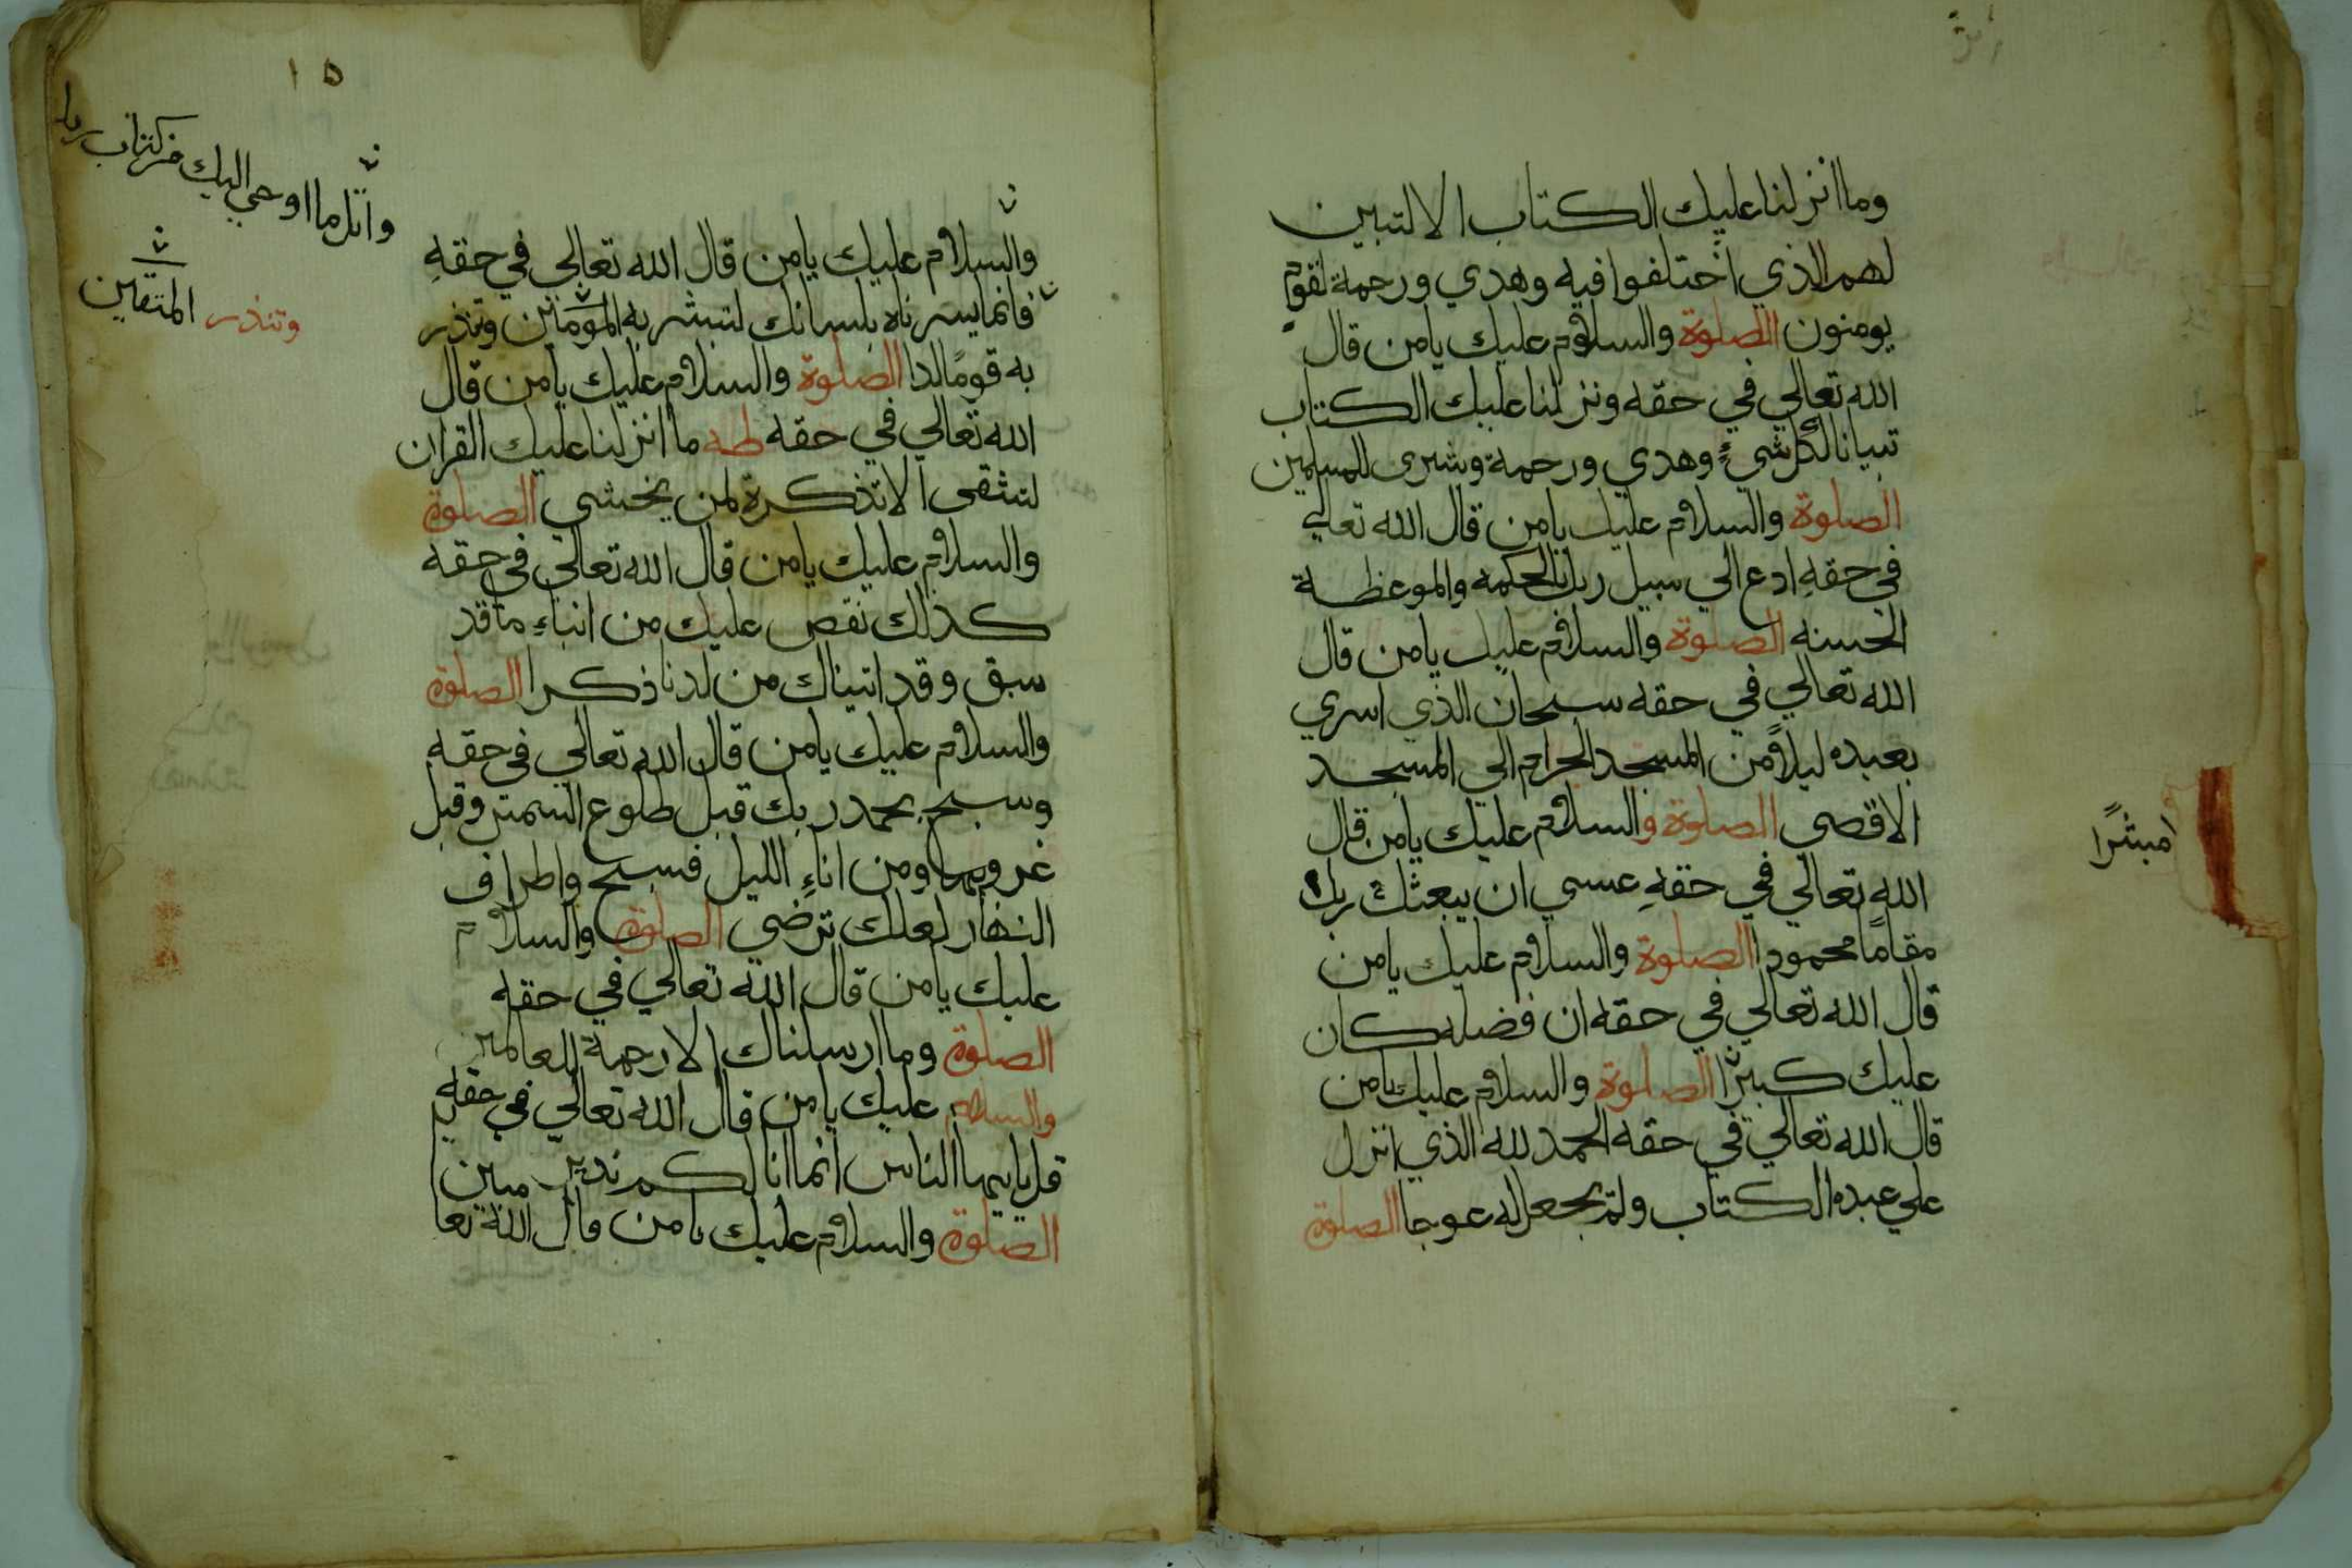 وما انزلنا عليك الكتاب الا لتبين
لهم الذي اختلفوا فيه وهدي ورحمة لقوم
يومنون الصلوة والسلام عليك يامن قال
الله تعالي في حقه ونزلنا عليك الكتاب
تبيانا لكل شيءٍ وهدي ورحمة وبشرى للمسلمين
الصلوة والسلام عليك يامن قال الله تعالي
في حقهِ ادع الي سبيل ربك بالحكمه والموعظة
الحسنه الصلوة والسلام عليك يامن قال
الله تعالي في حقه سبحان الذي اسري
بعبده ليلاً من المسجد الحرام الي المسجد
الاقصي الصلوة والسلام عليك يامن قال
الله تعالي في حقهِ عسي ان يبعثك ربك
مقاماً محمودا الصلوة والسلام عليك يامن
قال الله تعالي في حقه ان فضله كان
عليك كبيرًا الصلوة والسلام عليك يامن
قال الله تعالي في حقه الحمد لله الذي انزل
علي عبده الكتاب ولم يجعل له عوجا الصلوة
مبشرًا
١٥
واتل ما اوحي اليك من كتاب
وتنذر المتقين
والسلام عليك يامن قال الله تعالي في حقهِ
فانما يسرناه بلسانك لتبشر به المؤمنين وتنذر
به قومًا لدا الصلوة والسلام عليك يامن قال
الله تعالي في حقه طه ما انزلنا عليك القران
لتشقى الا تذكرة لمن يخشي الصلوة
والسلام عليك يامن قال الله تعالي في حقه
كذلك نقص عليك من انباءِ ما قد
سبق وقد اتيناك من لدنا ذكرا الصلوة
والسلام عليك يامن قال الله تعالي في حقه
وسبح بحمد ربك قبل طلوع الشمس وقبل
غروبها ومن اناءِ الليل فسبح واطراف
النهار لعلك ترضي الصلوة والسلام
عليك يامن قال الله تعالي في حقه
الصلوة وما ارسلناك الا رحمة للعالمين
والسلام عليك يامن قال الله تعالي في حقه
قل يا ايها الناس انما انا لكم نذير مبين
الصلوة والسلام عليك يامن قال الله تعا